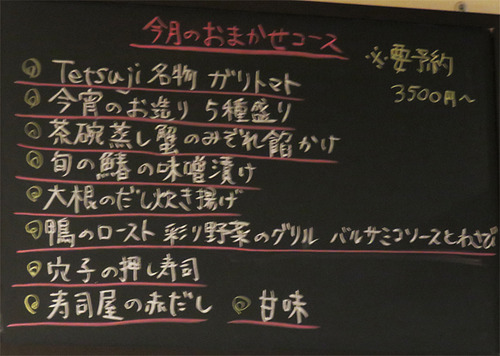 今月のおまかせコース
※要予約
3500円~
Tetsuji名物 ガリトマト
今宵のお造り 5種盛り
茶碗蒸し蟹のみぞれ餡かけ
旬の鰆の味噌漬け
大根のだし炊き揚げ
鴨のロースト 彩り野菜のグリル バルサミコソースとわさび
穴子の押し寿司
寿司屋の赤だし 甘味